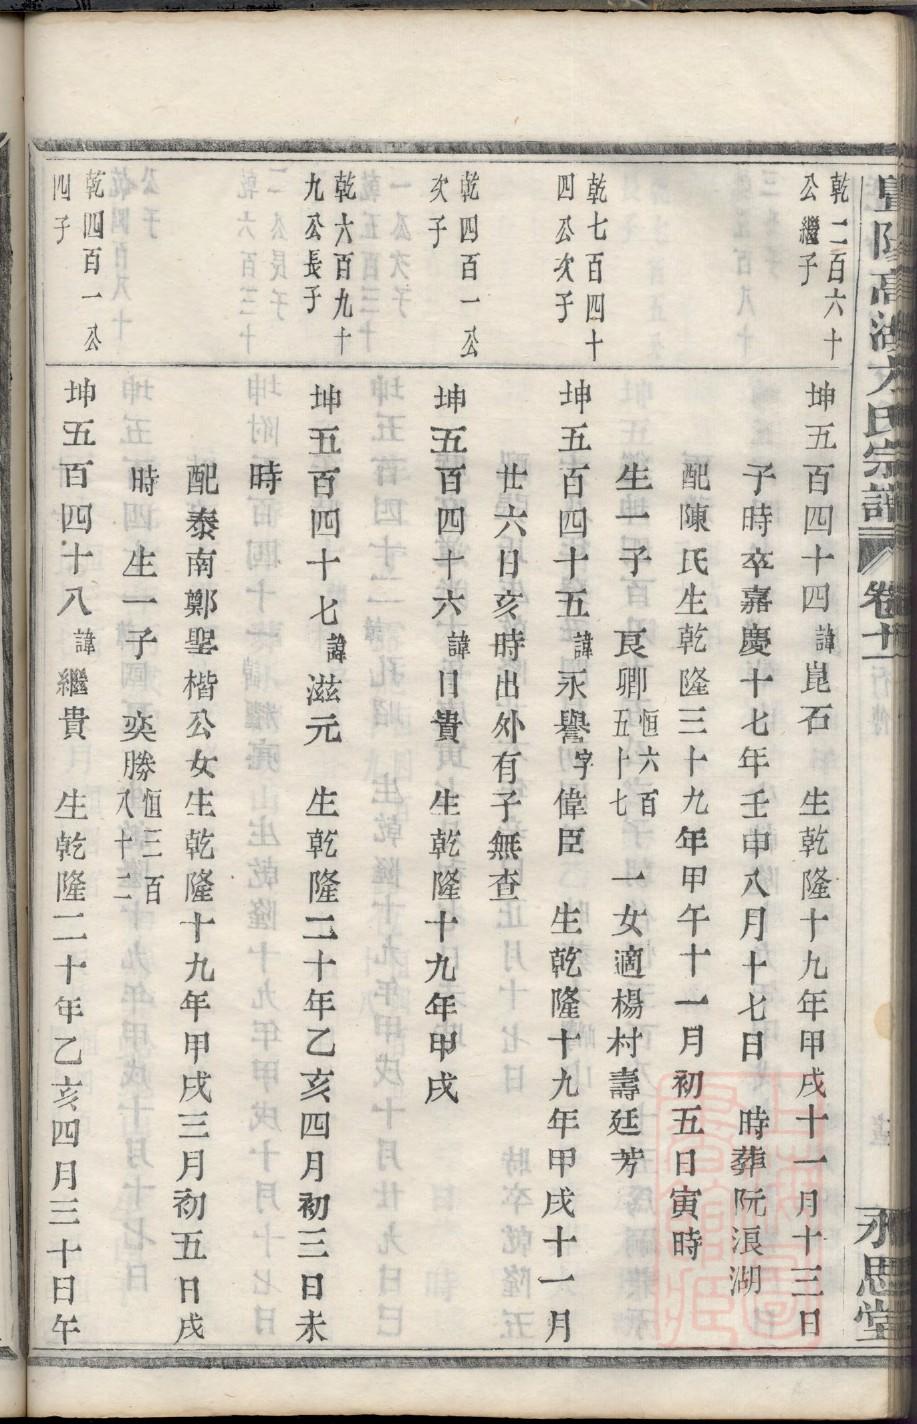 暨陽高湖方氏宗譜 卷十一
永思堂
乾二百六十
公繼子
坤五百四十四諱崑石 生乾隆十九年甲戌十一月十三日
子時卒嘉慶十七年壬申八月十七日 時葬阮浪湖
配陳氏生乾隆三十九年甲午十一月初五日寅時
生一子 良卿恒六百五十七 一女適楊村壽廷芳
乾七百四十
四公次子
坤五百四十五諱永譽字偉臣 生乾隆十九年甲戌十一月
廿六日亥時出外有子無查
乾四百一公
次子
坤五百四十六諱日貴 生乾隆十九年甲戌
乾六百九十
九公長子
坤五百四十七諱滋元 生乾隆二十年乙亥四月初三日未
時
配泰南鄭聖楷公女生乾隆十九年甲戌三月初五日戌
時 生一子 奕勝恒三百八十二
乾四百一公
四子
坤五百四十八諱繼貴 生乾隆二十年乙亥四月三十日午